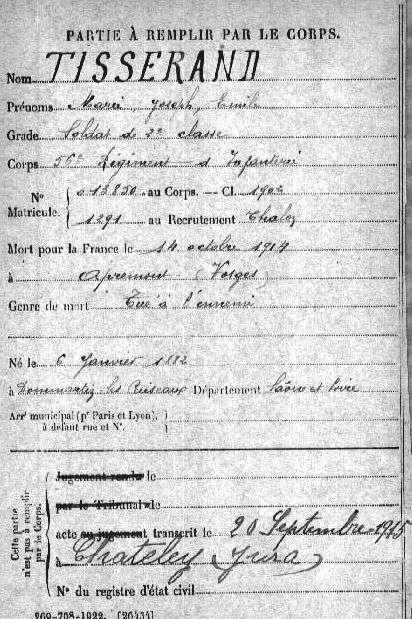 PARTIE À REMPLIR PAR LE CORPS.
Nom TISSERAND
Prénoms Marie, Joseph, Emile
Grade Soldat de 2e classe
Corps 56e Régiment d'Infanterie
No Matricule. 013850 au Corps. — Cl. 1902
1291 au Recrutement Chalon
Mort pour la France le 14 octobre 1914
à Apremont (Vosges)
Genre de mort Tué à l'ennemi
Né le 6 Janvier 1882
à les Département Saône et Loire
Arrt municipal (pr Paris et Lyon),
à défaut rue et No.
Cette partie n'est pas à remplir par le Corps.
Jugement rendu le
par le Tribunal de
acte ou jugement transcrit le 20 Septembre 1915
à Chateley Jura
No du registre d'état civil
269-708-1922. [26434]